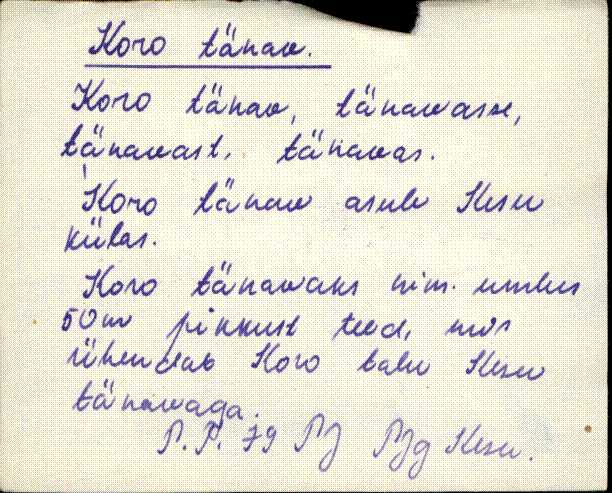 Koro tänav.
Koro tänav, tänavasse,
tänavast, tänavas.
Koro tänav asub Kesu
külas.
Koro tänavaks nim. umbes
50m pikkust teed, mis
ühendab Koro talu Kesu
tänavaga.
P. P. 79 PJ PJg Kesu.